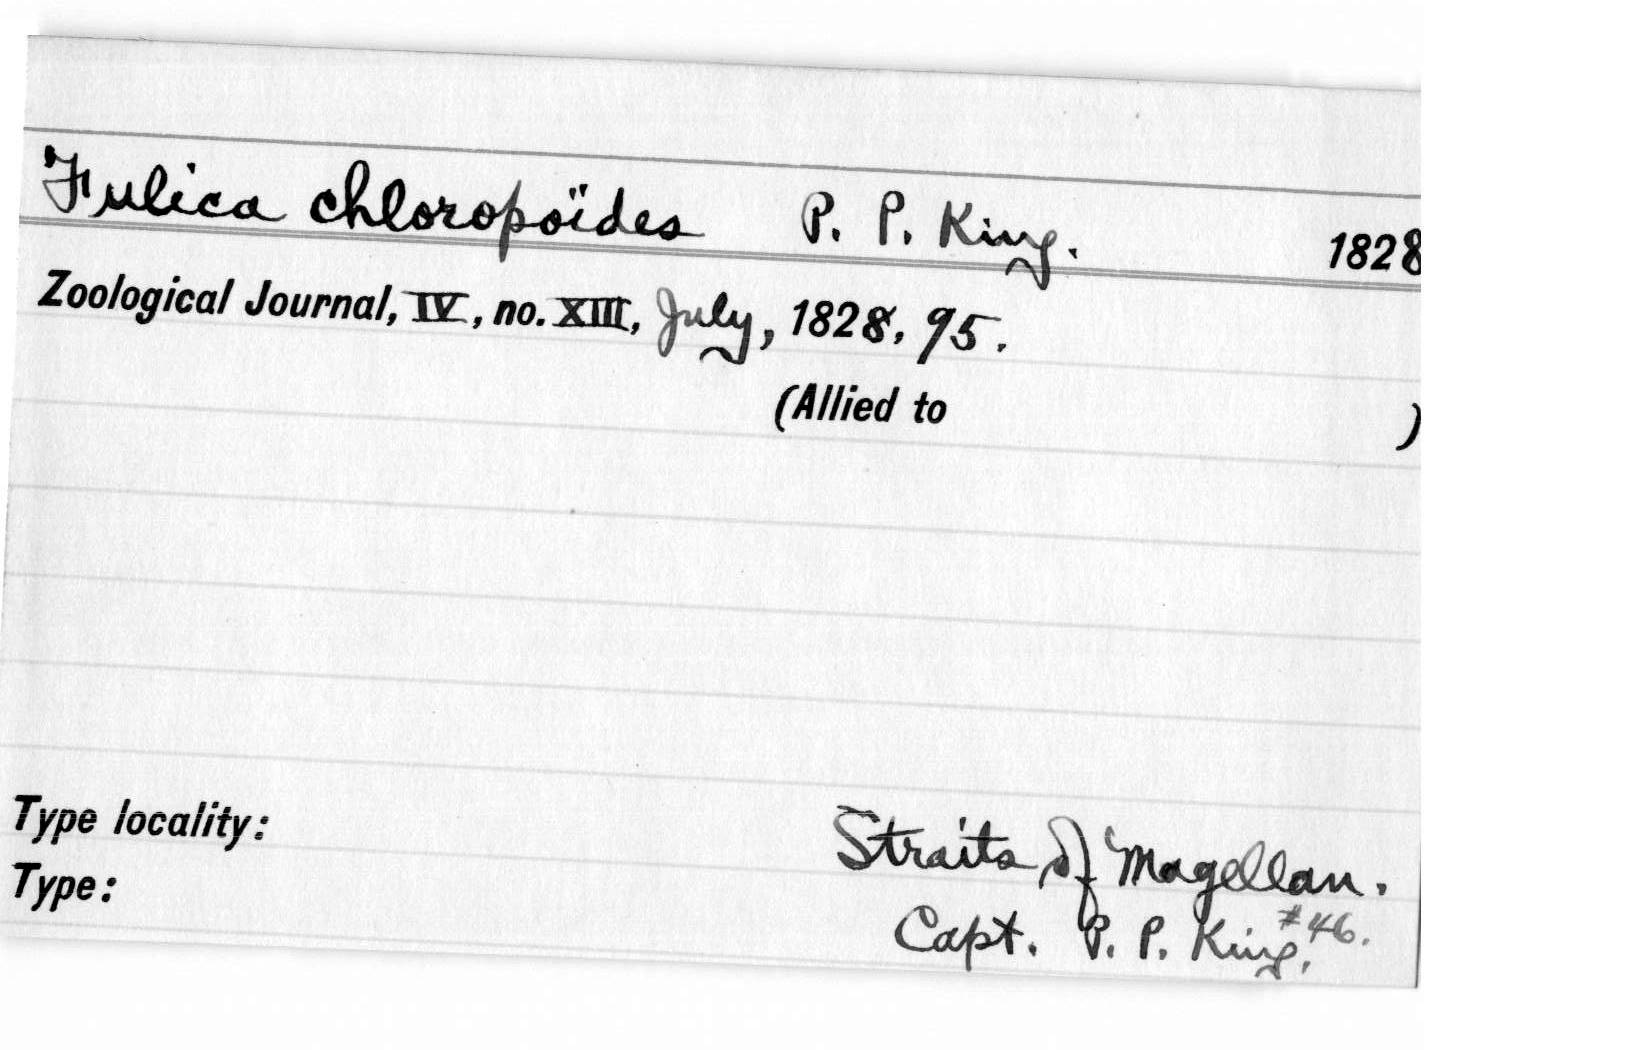 Fulica chloropoïdes P. P. King. 1828
Zoological Journal, IV, no. XIII, July, 1828, 95.
(Allied to )
Type locality: Straits of Magellan.
Type: Capt. P. P. King. #46.